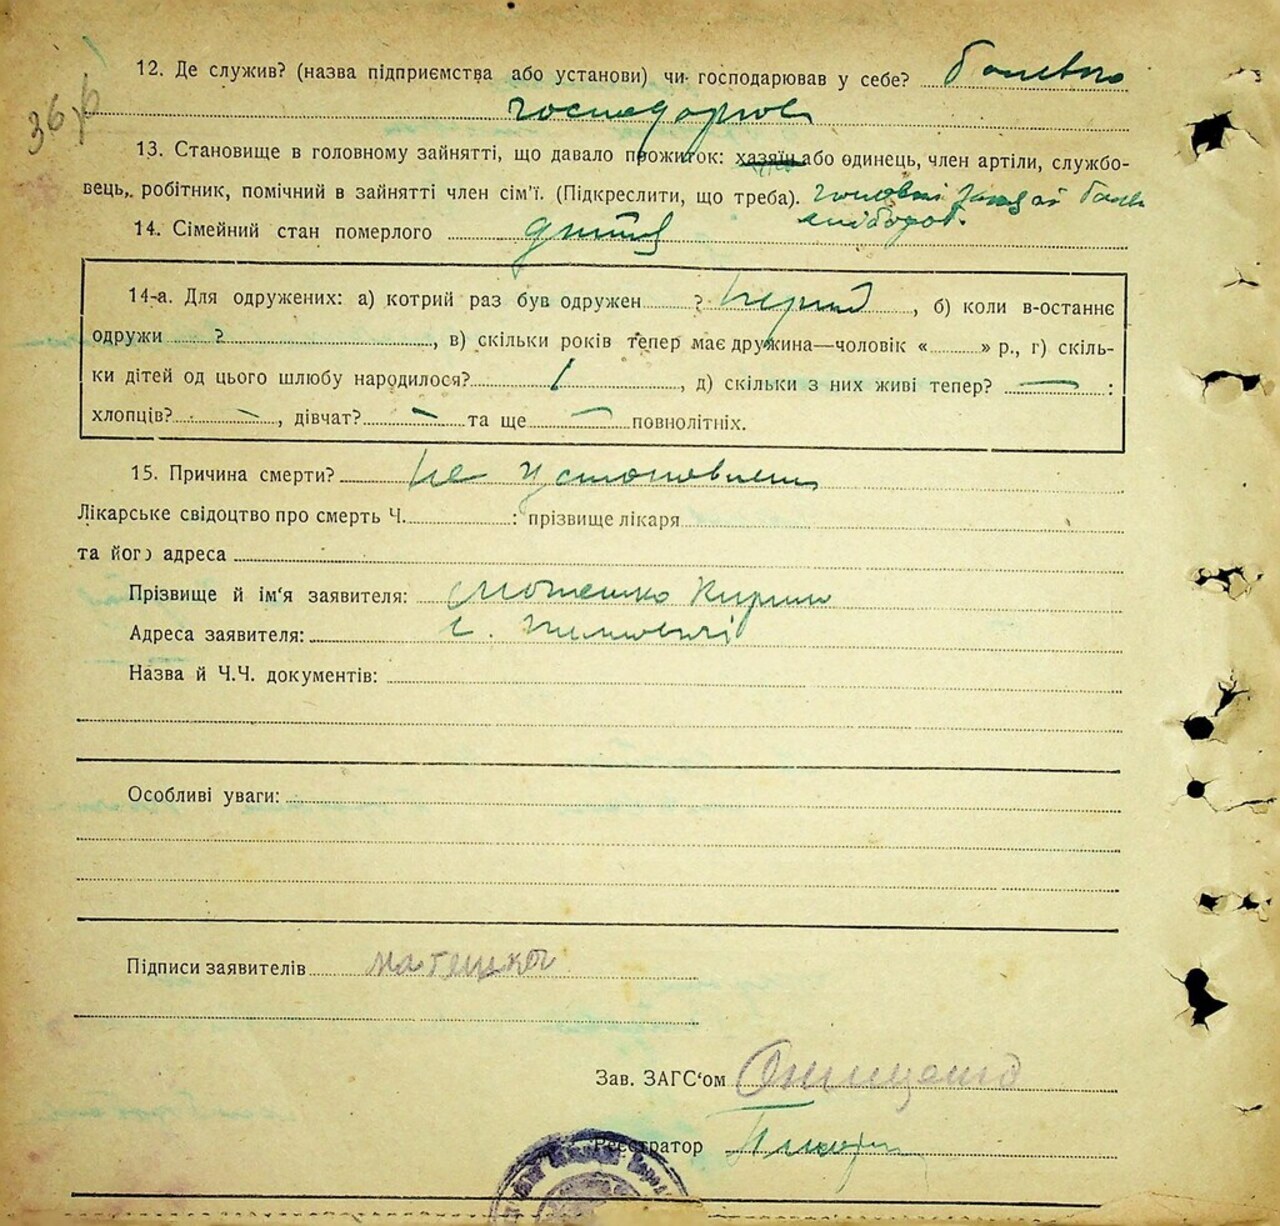 36,б
12. Де служив? (назва підприємства або установи) чи господарював у себе?
господарюв
13. Становище в головному зайнятті, що давало прожиток: хазяїн або одинець, член артіли, службо-
вець, робітник, помічний в зайнятті член сім'ї. (Підкреслити, що треба).
14. Сімейний стан померлого
14-а. Для одружених: а) котрий раз був одружен ? перший, б) коли в-останнє
одружи ?, в) скільки років тепер має дружина—чоловік « » р., г) скіль-
ки дітей од цього шлюбу народилося?, д) скільки з них живі тепер? — :
хлопців? —, дівчат? — та ще — повнолітніх.
15. Причина смерти? Не установлена
Лікарське свідоцтво про смерть Ч. : прізвище лікаря
та його адреса
Прізвище й ім'я заявителя: Кирило
Адреса заявителя: с.
Назва й Ч.Ч. документів:
Особливі уваги:
Підписи заявителів
Зав. ЗАГС'ом Онищенко
Реєстратор